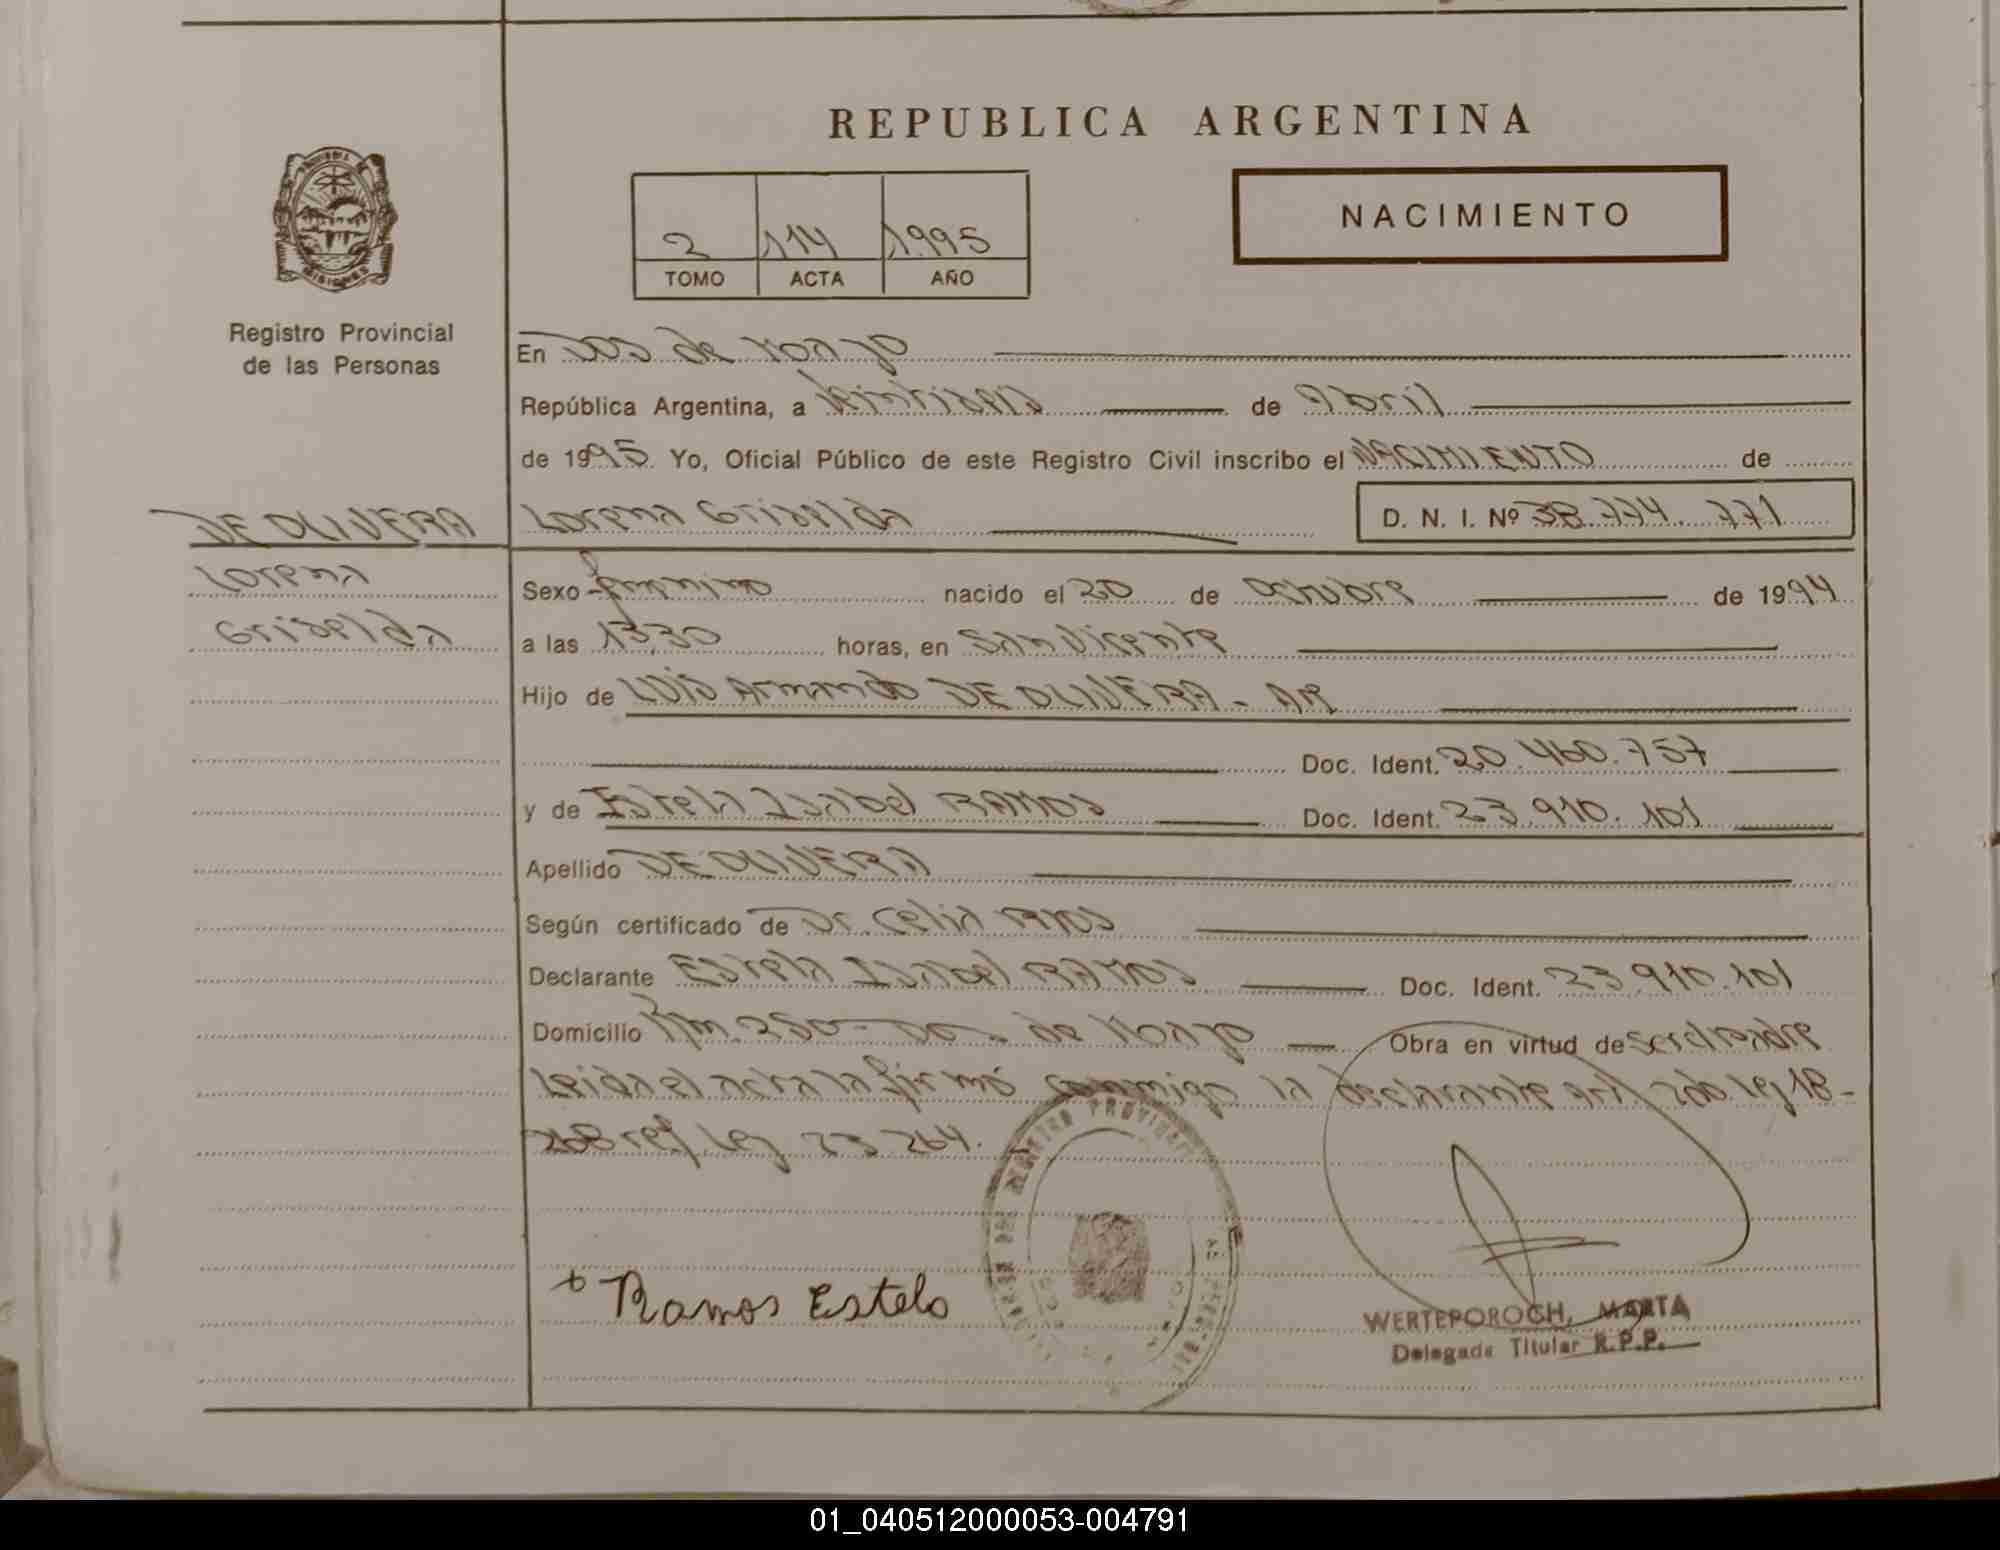 REPUBLICA ARGENTINA
2 114 1995
TOMO ACTA AÑO
NACIMIENTO
Registro Provincial
de las Personas
En Dos de Mayo
República Argentina, a Veintiseis de Abril
de 1995 Yo, Oficial Público de este Registro Civil inscribo el NACIMIENTO de
DE OLIVERA
Lorena
Griselda
Lorena Griselda D. N. I. Nº 38.774.771
Sexo femenino nacido el 20 de Octubre de 1994
a las 13,30 horas, en San Vicente
Hijo de Luis Armando DE OLIVERA - AR
Doc. Ident. 20.460.757
y de Estela Isabel RAMOS Doc. Ident. 23.910.101
Apellido DE OLIVERA
Según certificado de Dr. Celia
Declarante Estela Isabel RAMOS Doc. Ident. 23.910.101
Domicilio Km. 250 - Dos de Mayo Obra en virtud de ser Madre
Leida el acta la firmó conmigo la declarante art. 2do ley 18-
268 ref. Ley 23.264.
+ Ramos Estela
REGISTRO PROVINCIAL
WERTEPOROCH, MARTA
Delegada Titular R.P.P.
01_040512000053-004791